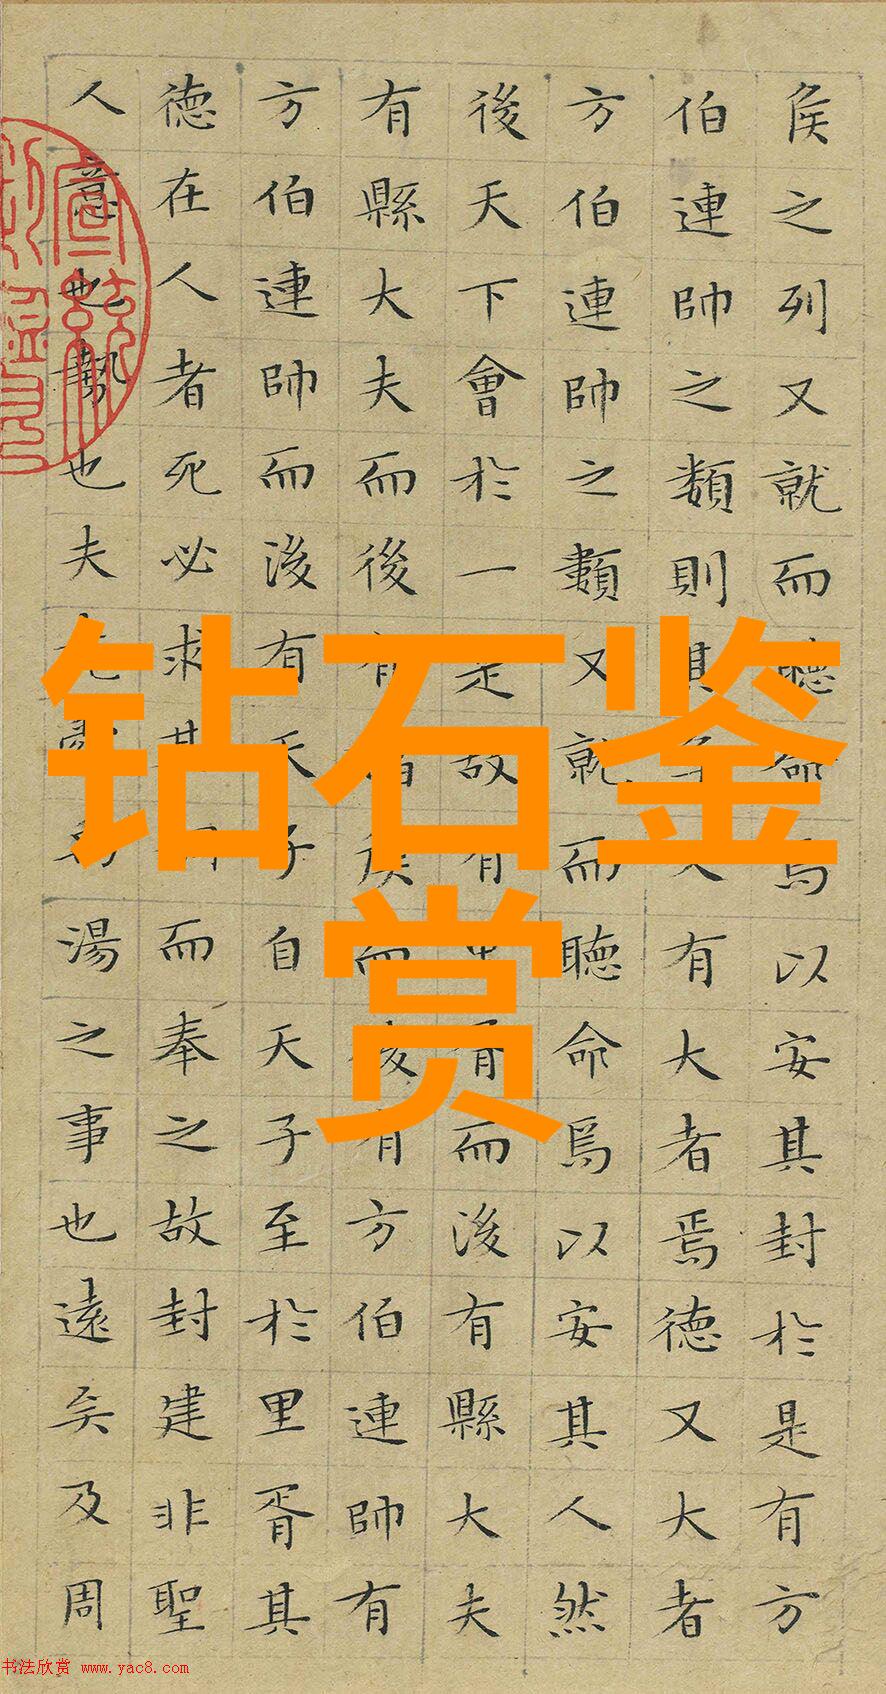 侯之列又就而聽命焉以安其封於是有方
伯連帥之類則其爭又有大者焉德又大者
方伯連帥之類又就而聽命焉以安其人然
後天下會於一是故有里胥而後有縣大夫
有縣大夫而後有諸侯而後有方伯連帥有
方伯連帥而後有天子自天子至於里胥其
德在人者死必求其嗣而奉之故封建非聖
人意也勢也夫堯舜禹湯之事也遠矣及周
钻石鉴
赏
书法欣赏 www.yac8.com